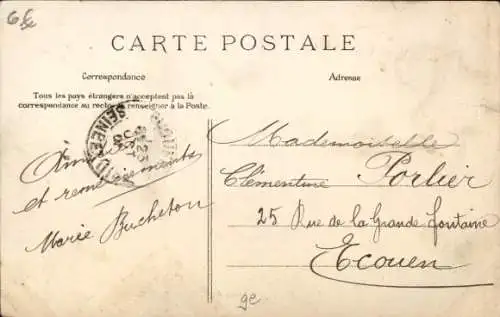 6E
CARTE POSTALE
Correspondance
Adresse
Tous les pays étrangers n'acceptent pas la
correspondance au recto se renseigner à la Poste.
SEINE
et remerciements
Marie Bucheton
Mademoiselle
Clémentine Porlier
25 Rue de la Grande fontaine
Ecouen
ge